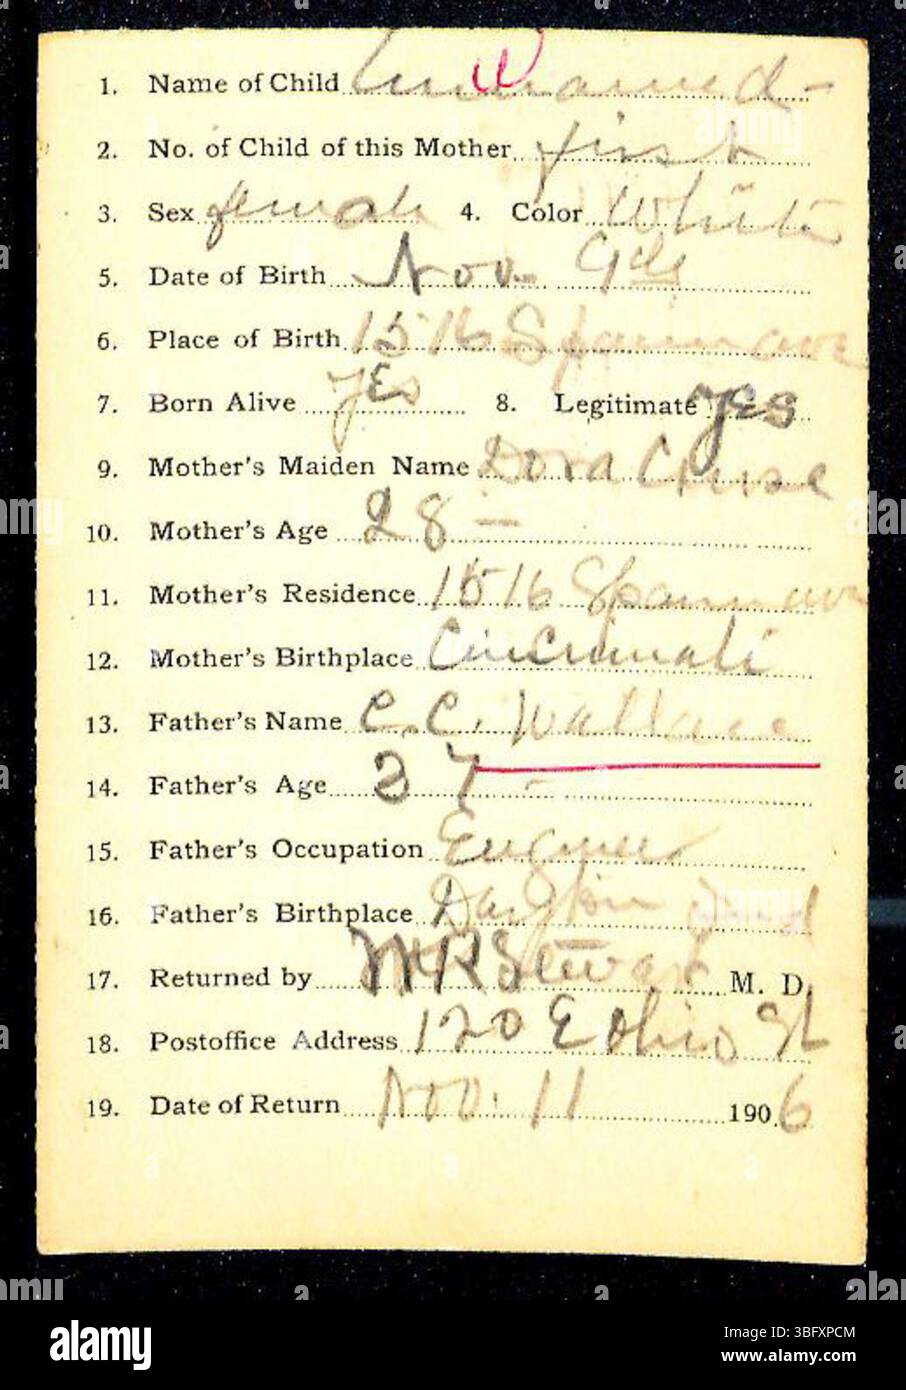 1. Name of Child Unnamed -
2. No. of Child of this Mother first
3. Sex female 4. Color White
5. Date of Birth Nov. 9th
6. Place of Birth 1516 Spann ave
7. Born Alive yes 8. Legitimate yes
9. Mother's Maiden Name Dora Cruse
10. Mother's Age 28 -
11. Mother's Residence 1516 Spann ave
12. Mother's Birthplace Cincinnati
13. Father's Name C. C. Wallace
14. Father's Age 27 -
15. Father's Occupation Engineer
16. Father's Birthplace
17. Returned by Stewart M. D.
18. Postoffice Address 120 E Ohio St
19. Date of Return Nov. 11 1906
alamy
Image ID: 3BFXPCM
www.alamy.com